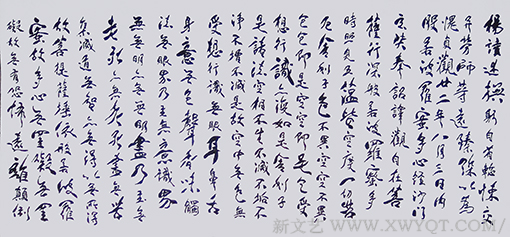 撫躬自省慚悚交
并勞師等遠臻深以為
愧貞觀廿二年八月三日內
般若波羅蜜多心經沙門
玄奘奉詔譯觀自在菩
薩行深般若波羅蜜多
時照見五蘊皆空度一切苦
厄舍利子色不異空空不異
色色即是空空即是色受
想行識亦復如是舍利子
是諸法空相不生不滅不垢不
淨不增不減是故空中無色無
受想行識無眼耳鼻舌
身意無色聲香味觸
法無眼界乃至無意識界
無無明亦無無明盡乃至無
老死亦無老死盡無苦
集滅道無智亦無得以無所得
故菩提薩埵依般若波羅
蜜多故心無罣礙無罣
礙故無有恐怖遠離顛倒
新文艺 WWW.XWYQT.COM